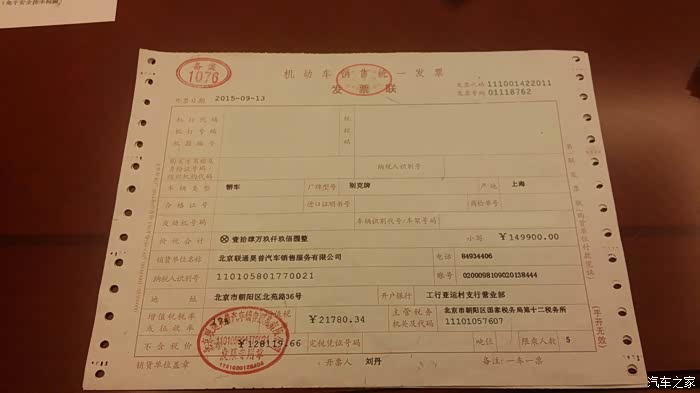 备案
1076
机动车销售统一发票
发票联
发票代码 111001422011
发票号码 01118762
开票日期 2015-09-13
机打代码
机打号码
机器编号
税控码
纳税人识别号
车辆类型 轿车 厂牌型号 别克牌 产地 上海
合格证号 进口证明书号 商检单号
发动机号码 车辆识别代号/车架号码
价税合计 ⊗壹拾肆万玖仟玖佰圆整 小写 ￥149900.00
销货单位名称 北京联通昊普汽车销售服务有限公司 电话 84934406
纳税人识别号 110105801770021 账号 0200098109020138444
地址 北京市朝阳区北苑路36号 开户银行 工行亚运村支行营业部
增值税税率或征收率 ￥21780.34 主管税务机关及代码 北京市朝阳区国家税务局第十二税务所
11101057607
不含税价 完税凭证号码 吨位 限乘人数 5
发票专用章
销货单位盖章 开票人 刘丹 备注:一车一票
(手开无效)
汽车之家